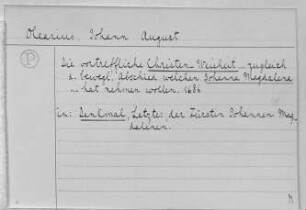 Olearius, Johann August
P
Die vortreffliche Christen-Weisheit ... zugleich
a. bewegl. Abschied welchen Johanna Magdalena
... hat nehmen wollen. 1686
in: Denkmal, Letztes, der Fürstin Johannen Mag-
dalenen.